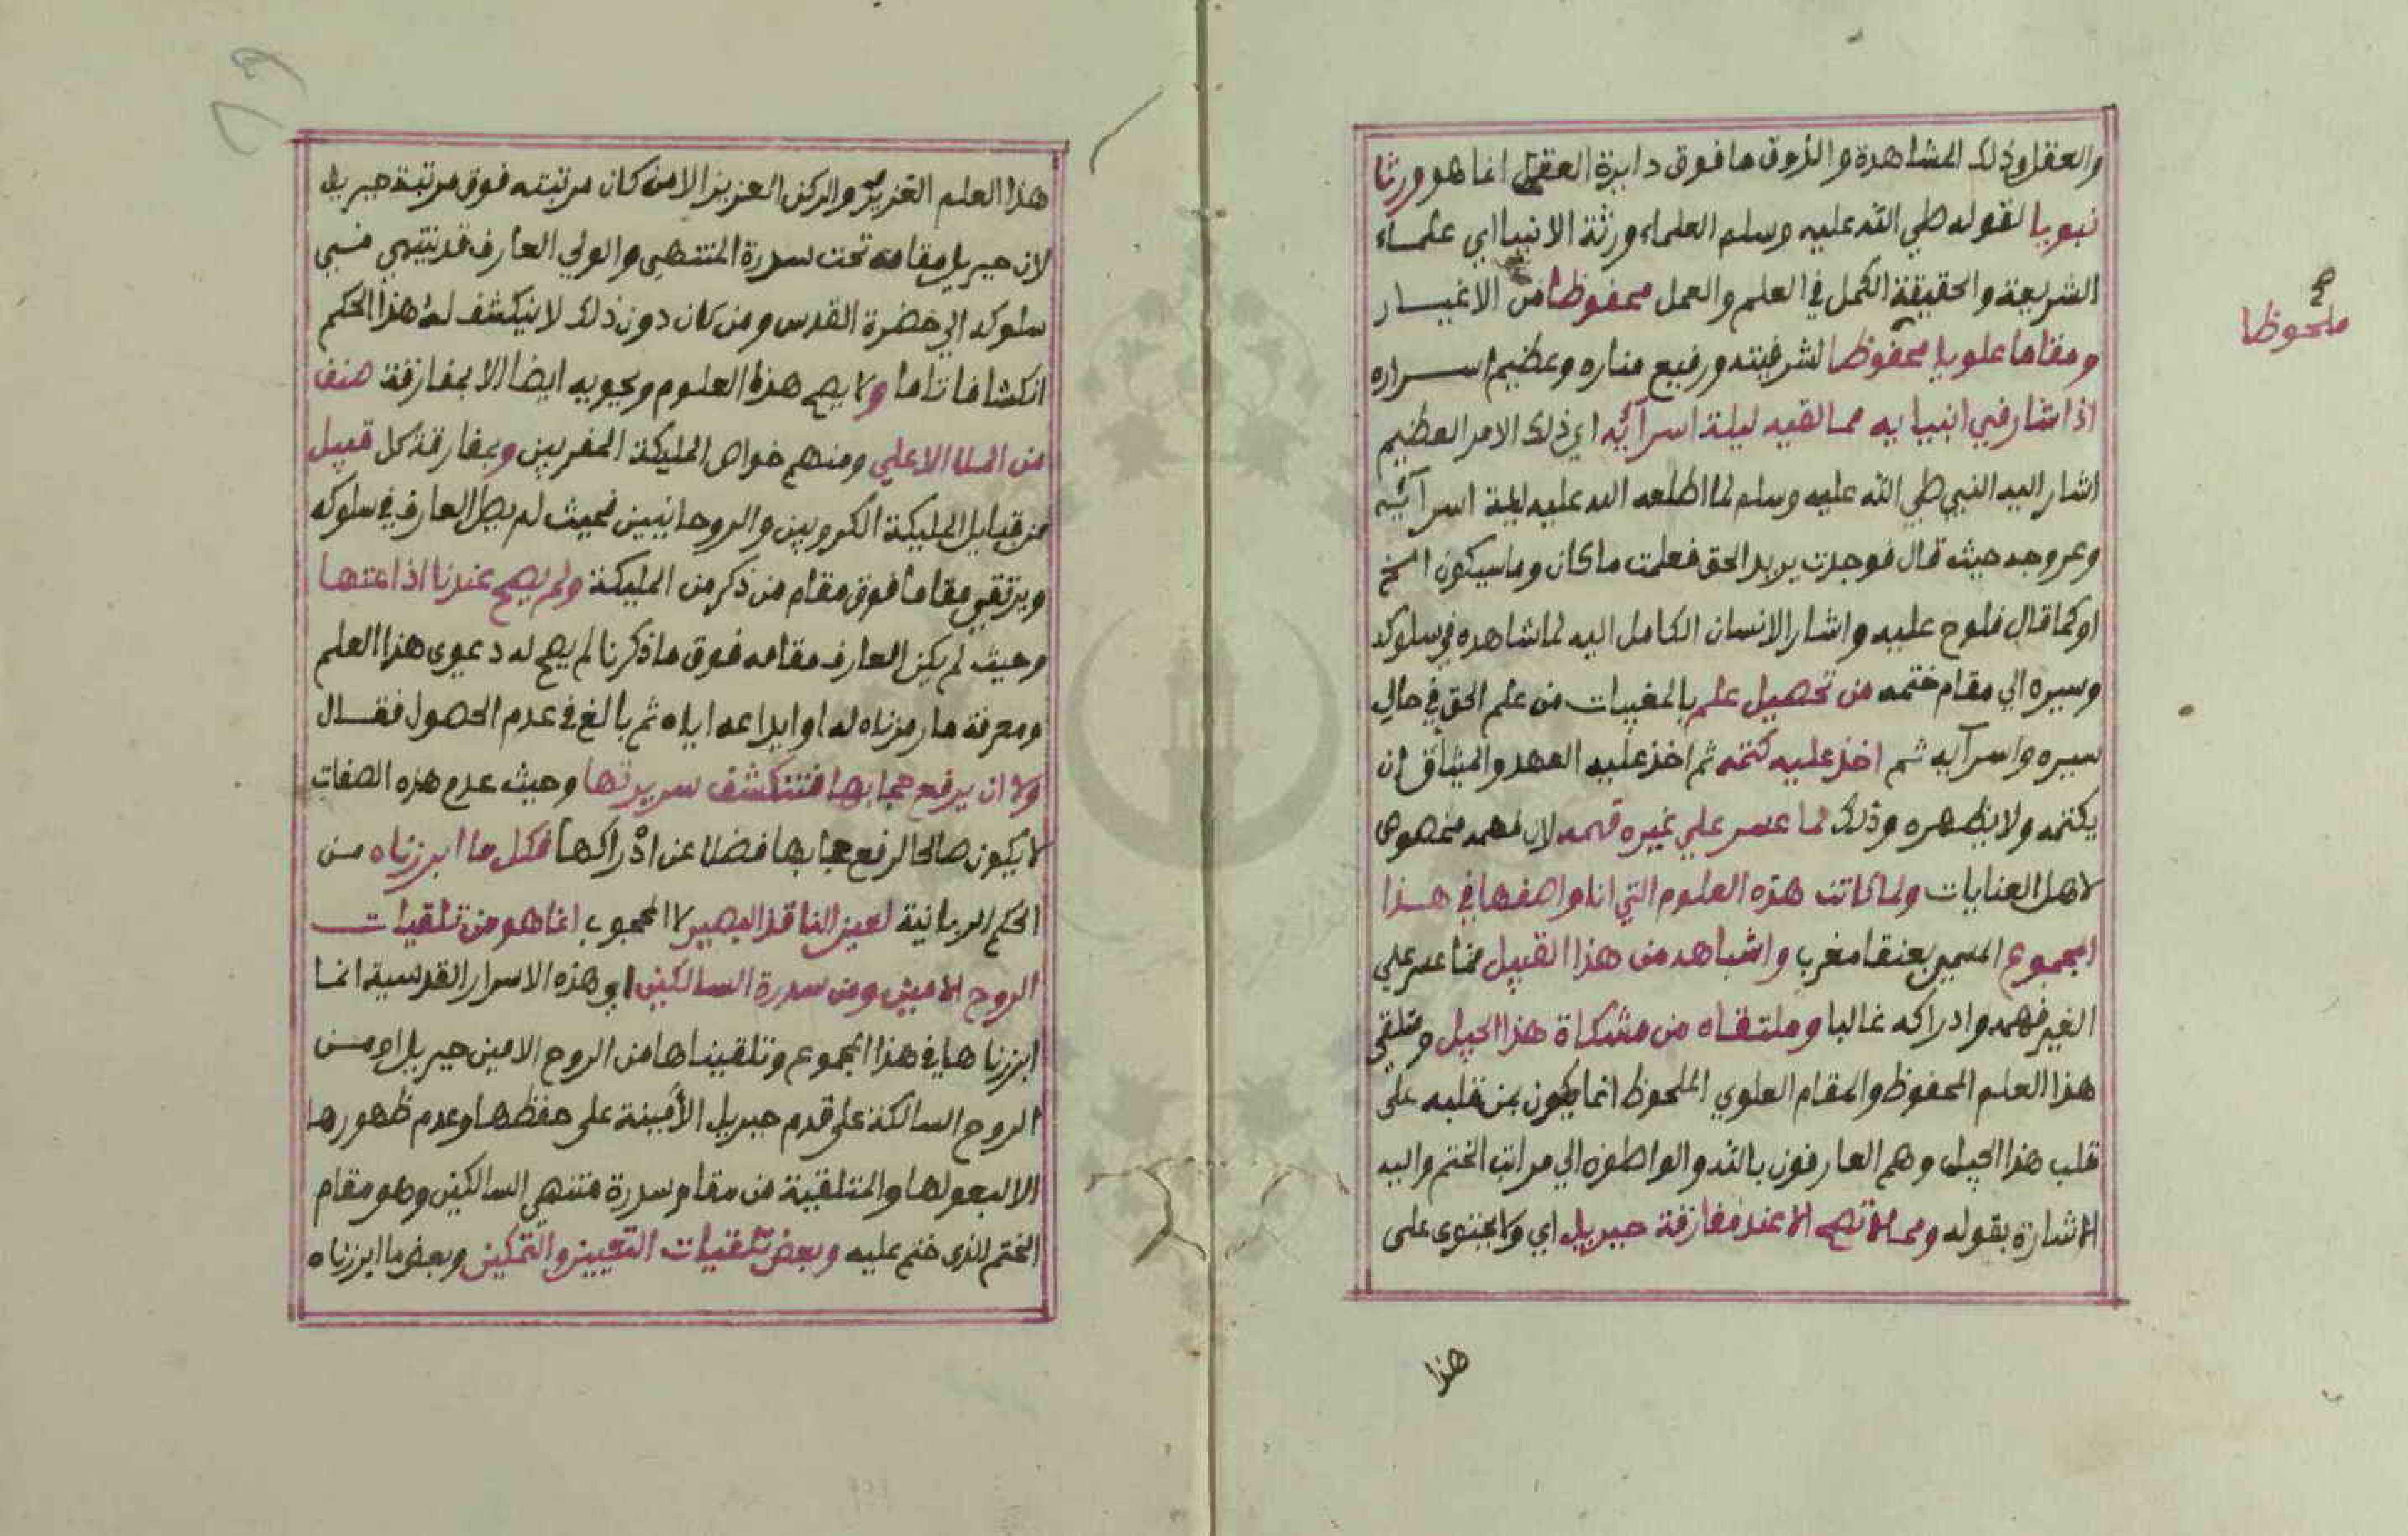 والعقل وذلك المشاهدة والذوق ما فوق دايرة العقل انما هو ورثا
نبويا لقوله صلي الله عليه وسلم العلماء ورثة الانبيا اي علماء
الشريعة والحقيقة الكمل في العلم والعمل محفوظا من الاغيار
ومقاما علويا محفوظا لشرفيته ورفيع مناره وعظيم اسراره
صح
ملحوظا
اذ اشار في انبيايه مما لقيه ليلة اسرآئه اي ذلك الامر العظيم
اشار اليه النبي صلي الله عليه وسلم لما اطلعه الله عليه ليلة اسرآئه
وعروجه حيث قال فوجدت بريد الحق فعلمت ما كان وما سيكون الخ
او كما قال فلوح عليه واشار الانسان الكامل اليه لما شاهده في سلوكه
وسيره الي مقام ختمه من تحصيل علم بالمغيبات من علم الحق في حالي
سيره واسرآيه ثم اخذ عليه كتمه ثم اخذ عليه العهد والميثاق ان
يكتمه ولا يظهره وذلك لما عسر علي غيره فهمه لان فهمه مخصوص
لاهل العنايات ولما كانت هذه العلوم التي انا واصفها في هذا
المجموع المسمي بعنقا مغرب واشباهه من هذا القبيل مما عسر علي
الغير فهمه وادراكه غالبا وملتقاه من مشكاة هذا الجيل ومتلقي
هذا العلم المحفوظ والمقام العلوي الملحوظ انما يكون من قلبه علي
قلب هذا الجيل وهم العارفون بالله والواصلون الي مراتب الختم واليه
الاشارة بقوله ومما لا تصح الا عند مفارقة جبريل اي ولا يحتوي على
هذا
هذا العلم العزيز والركن العزيز الا من كان مرتبته فوق مرتبة جبريل
لان جبريل مقامه تحت سدرة المنتهي والولي العارف قد ينتهي في
سلوكه الي حضرة القدس ومن كان دون ذلك لا ينكشف له هذا الحكم
انكشافا تاما ولا يصح هذه العلوم ويحويه ايضا الا بمفارقة صنف
من الملا الاعلي ومنهم خواص المليكة المقربين وبمفارقة كل قبيل
من قبايل المليكة الكروبين والروحانيين فحيث لم يصل العارف في سلوكه
ويرتقي مقاما فوق مقام من ذكر من المليكة ولم يصح عندنا اذاعتها
وحيث لم يكن العارف مقامه فوق ما ذكرنا لم يصح له دعوى هذا العلم
ومعرفة ما رمزناه له او ايداعه اياه ثم بالغ في عدم الحصول فقال
ولا ان يرفع حجابها فتنكشف سريرتها وحيث عدم هذه الصفات
لا يكون صالحا لرفع حجابها فضلا عن ادراكها فكل ما ابرزناه من
الحكم الربانية لعين الناقد البصير لا المحجوب انما هو من تلقيات
الروح الامين ومن سدرة السالكين اي وهذه الاسرار القدسية انما
ابرزناها في هذا المجموع وتلقيناها من الروح الامين جبريل او من
الروح السالكة على قدم جبريل الأمينة على حفظها وعدم ظهورها
الا لبعولها والمتلقية من مقام سدرة منتهي السالكين وهو مقام
الختم الذى ختم عليه وبعض تلقيات التعيين والتمكين وبعض ما ابرزناه